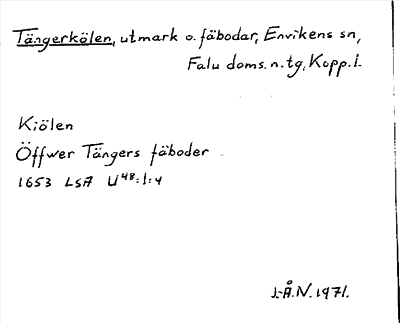 Tängerkölen, utmark o. fäbodar, Envikens sn,
Falu doms. n. tg, Kopp. l.
Kiölen
Öffwer Tängers fäboder
1653 LSA U48:1:4
J.Å.N. 1971.